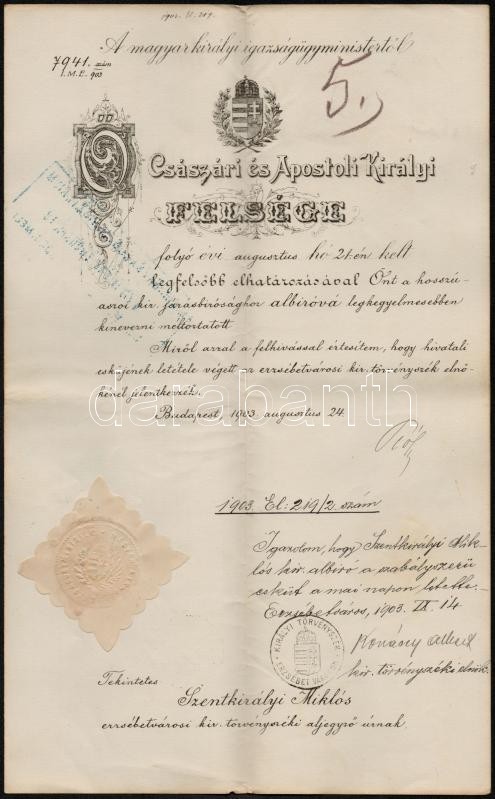 1903. El. 219.
A magyar királyi igazságügyministertől
7941. szám
I.M.E. 903
5.)
Ő Császári és Apostoli Királyi
FELSÉGE
folyó évi augusztus hó 21-én kelt
legfelsőbb elhatározásával Önt a hosszú-
aszói kir. járásbírósághoz albíróvá legkegyelmesebben
kinevezni méltóztatott
Miről azzal a felhívással értesítem, hogy hivatali
esküjének letétele végett az erzsébetvárosi kir. törvényszék elnö-
kénél jelentkezzék.
Budapest, 1903. augusztus 24.
darabanth
1903. El: 219/2. szám
Igazolom, hogy Szentkirályi Mik-
lós kir. albíró a szabályszerű
esküt a mai napon letette.
Erzsébetváros, 1903. IX. 14
KIRÁLYI TÖRVÉNYSZÉK
ERZSÉBETVÁROS
kir. törvényszéki elnök
Tekintetes
Szentkirályi Miklós
erzsébetvárosi kir. törvényszéki aljegyző úrnak